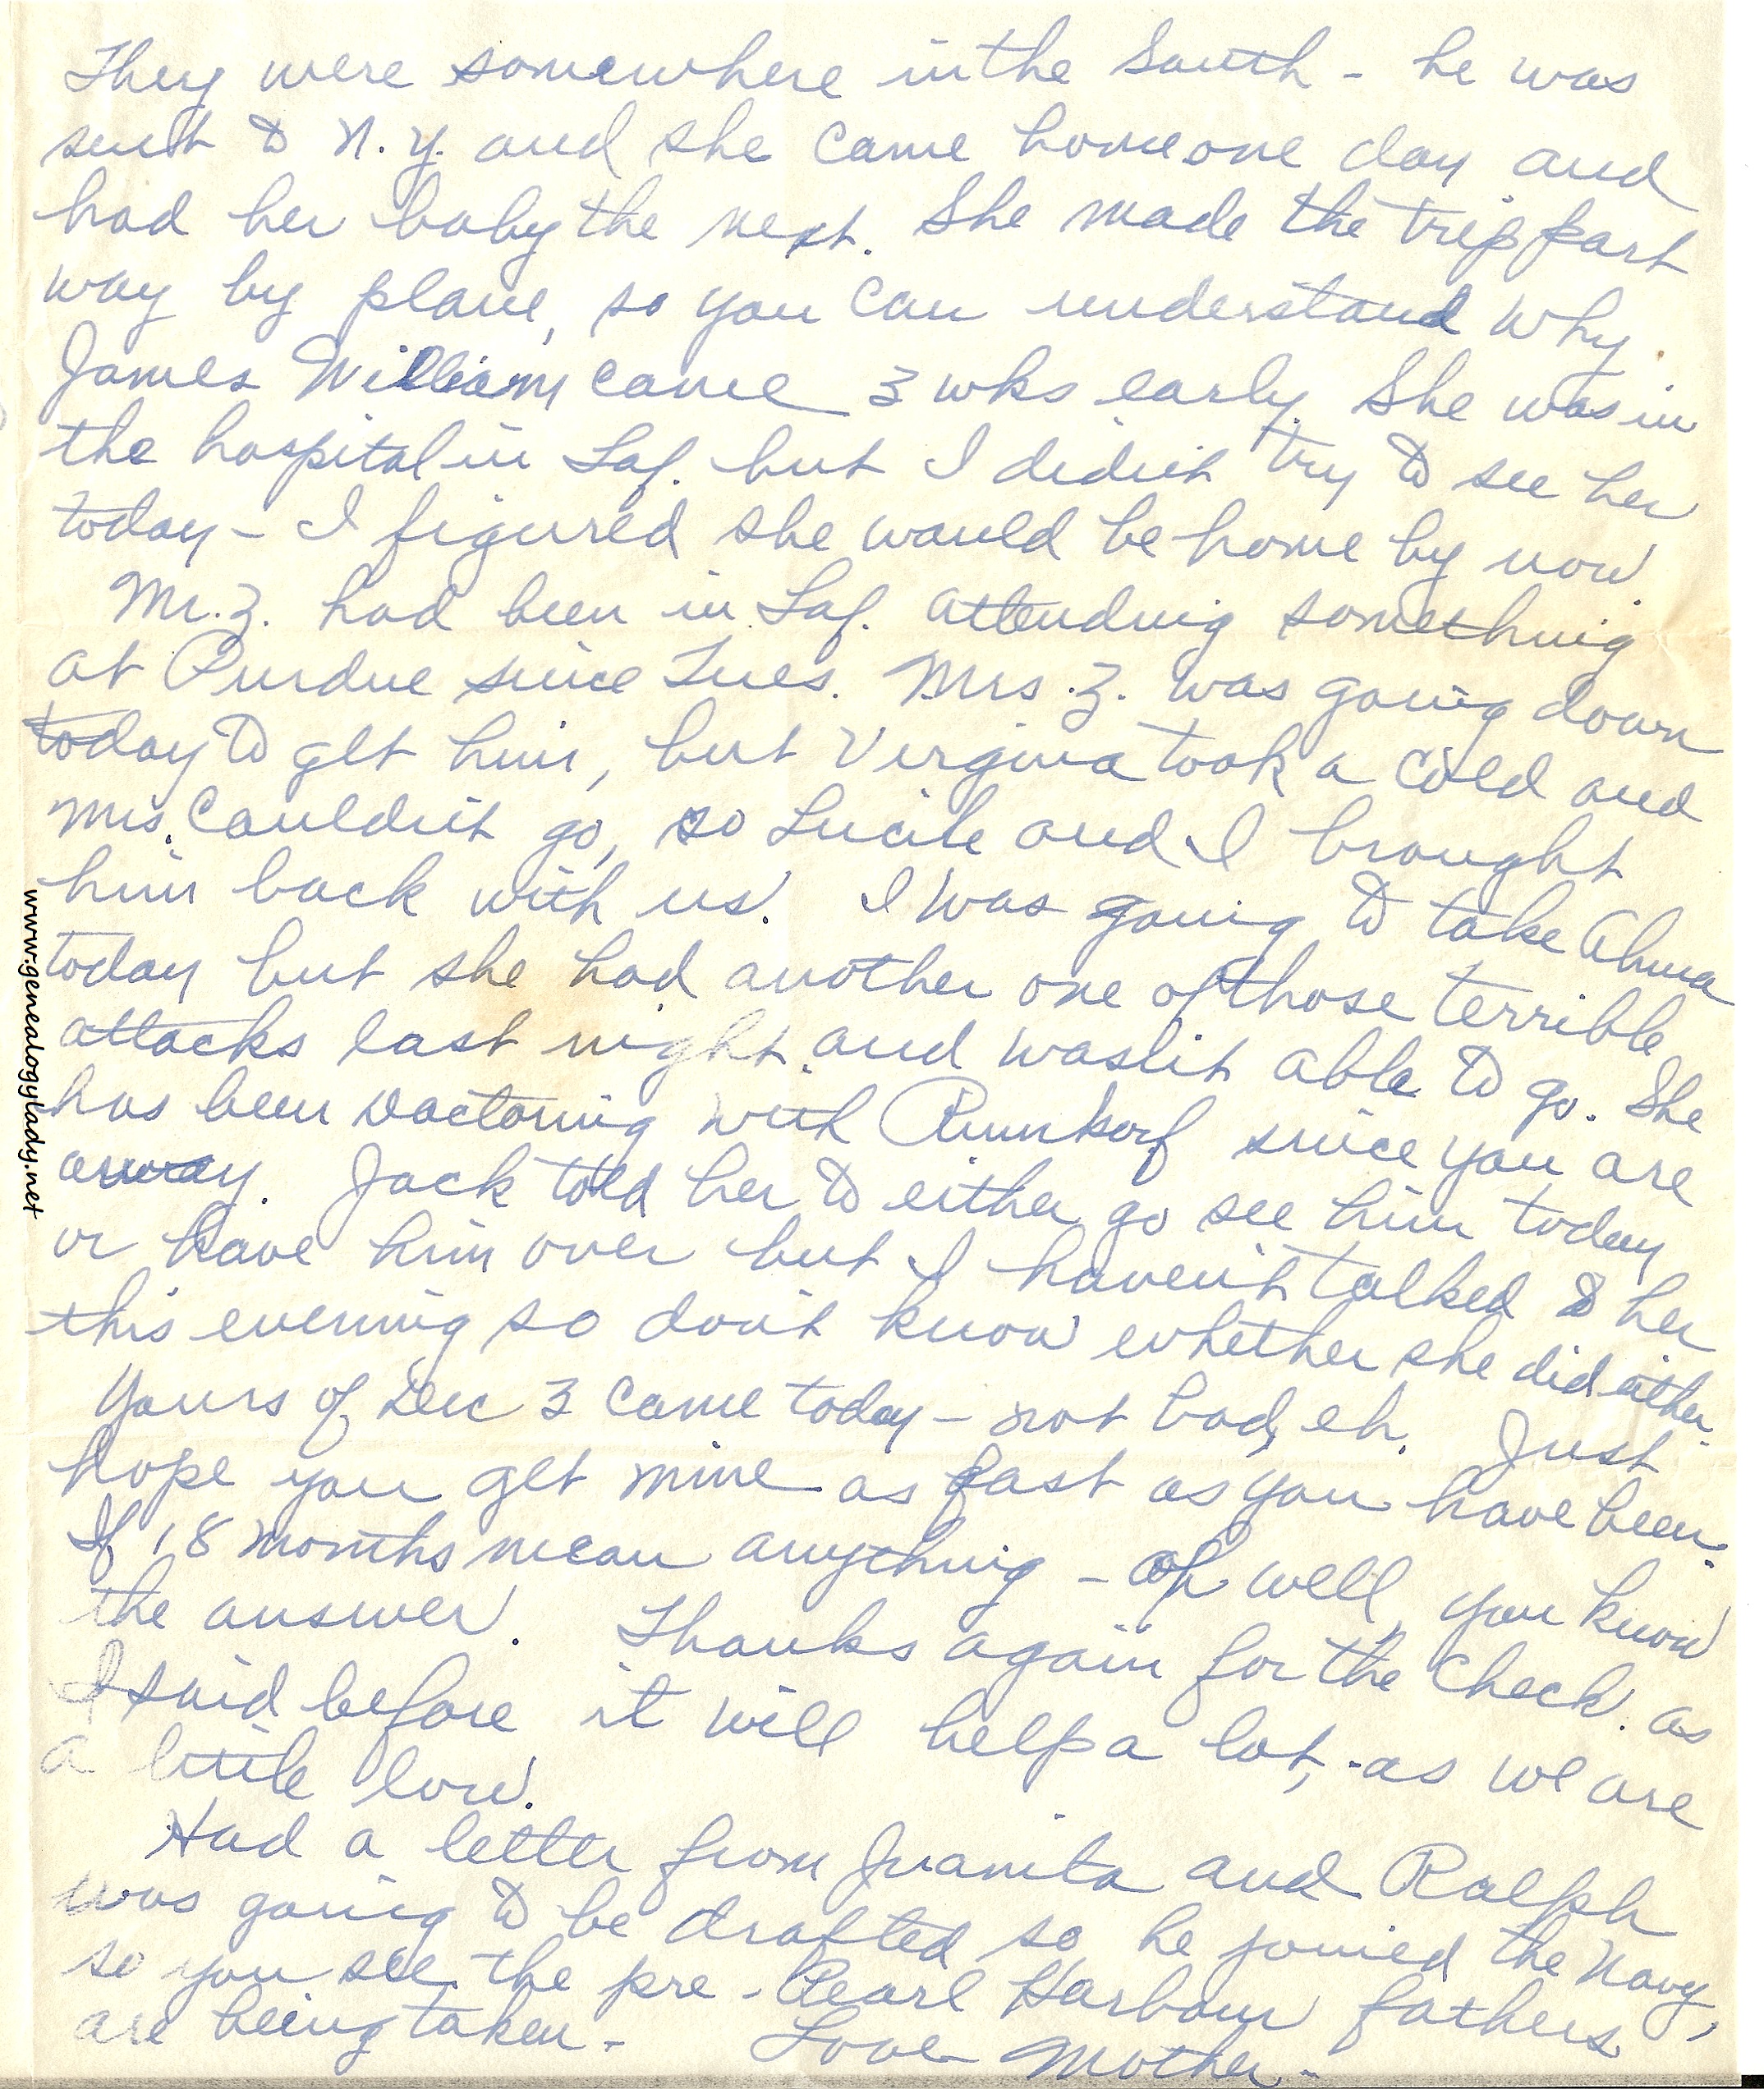 They were somewhere in the South - he was
sent to N.Y. and she came home one day and
had her baby the next. She made the trip part
way by plane, so you can understand why
James William came 3 wks early. She was in
the hospital in Laf. but I didn't try to see her
today - I figured she would be home by now.
Mr. Z. had been in Laf. attending something
at Purdue since Tues. Mrs. Z. was going down
today to get him, but Virginia took a cold and
Mrs. couldn't go, so Lucile and I brought
him back with us. I was going to take Alma
today but she had another one of those terrible
attacks last night and wasn't able to go. She
has been doctoring with Rumkorf since you are
away. Jack told her to either go see him today
or have him over but I haven't talked to her
this evening so don't know whether she did either.
Yours of Dec 3 came today - not bad, eh. Just
hope you get mine as fast as you have been.
If 18 months mean anything - oh well, you know
the answer. Thanks again for the check. as
I said before it will help a lot, - as we are
a little low.
Had a letter from Juanita and Ralph
was going to be drafted so he joined the Navy,
so you see the pre-Pearl Harbour fathers
are being taken - Love Mother -
www.genealogylady.net